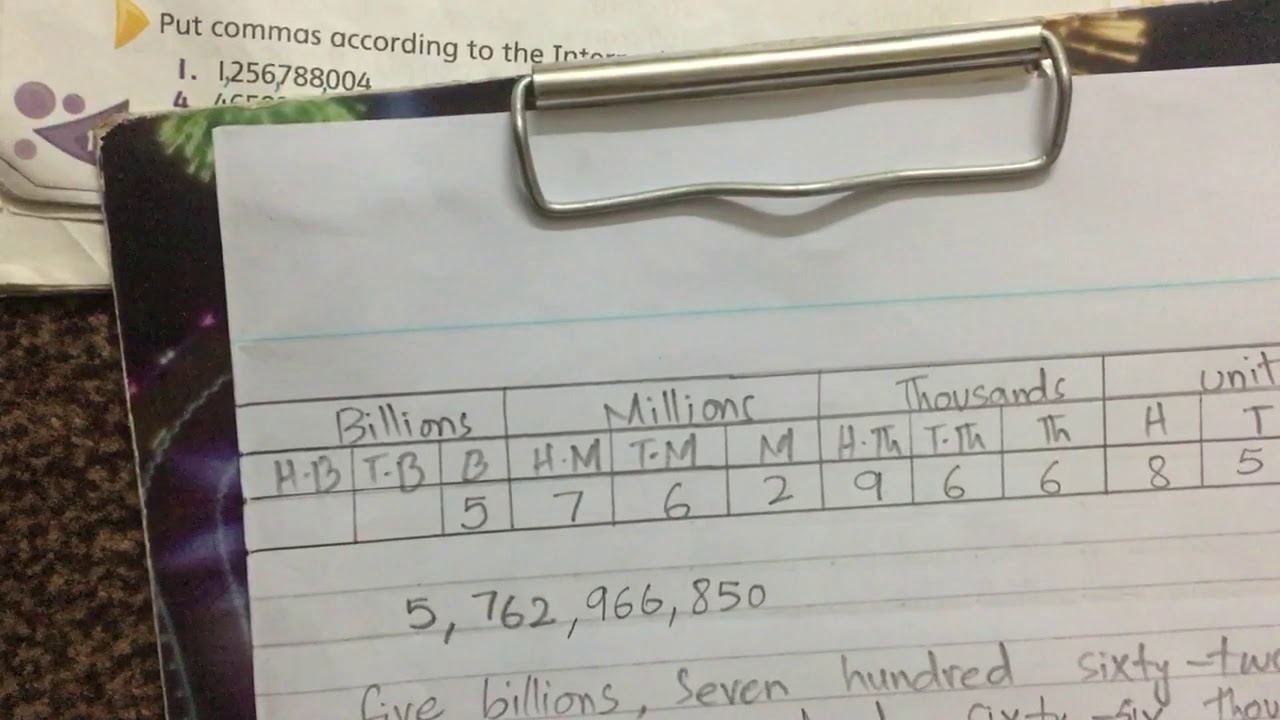 Put commas according to the
1. 1,256,788,004
4.
Billions Millions Thousands Unit
H.B T.B B H.M T.M M H.Th T.Th Th H T
5 7 6 2 9 6 6 8 5
5,762,966,850
five billions, seven hundred sixty-two
sixty-six